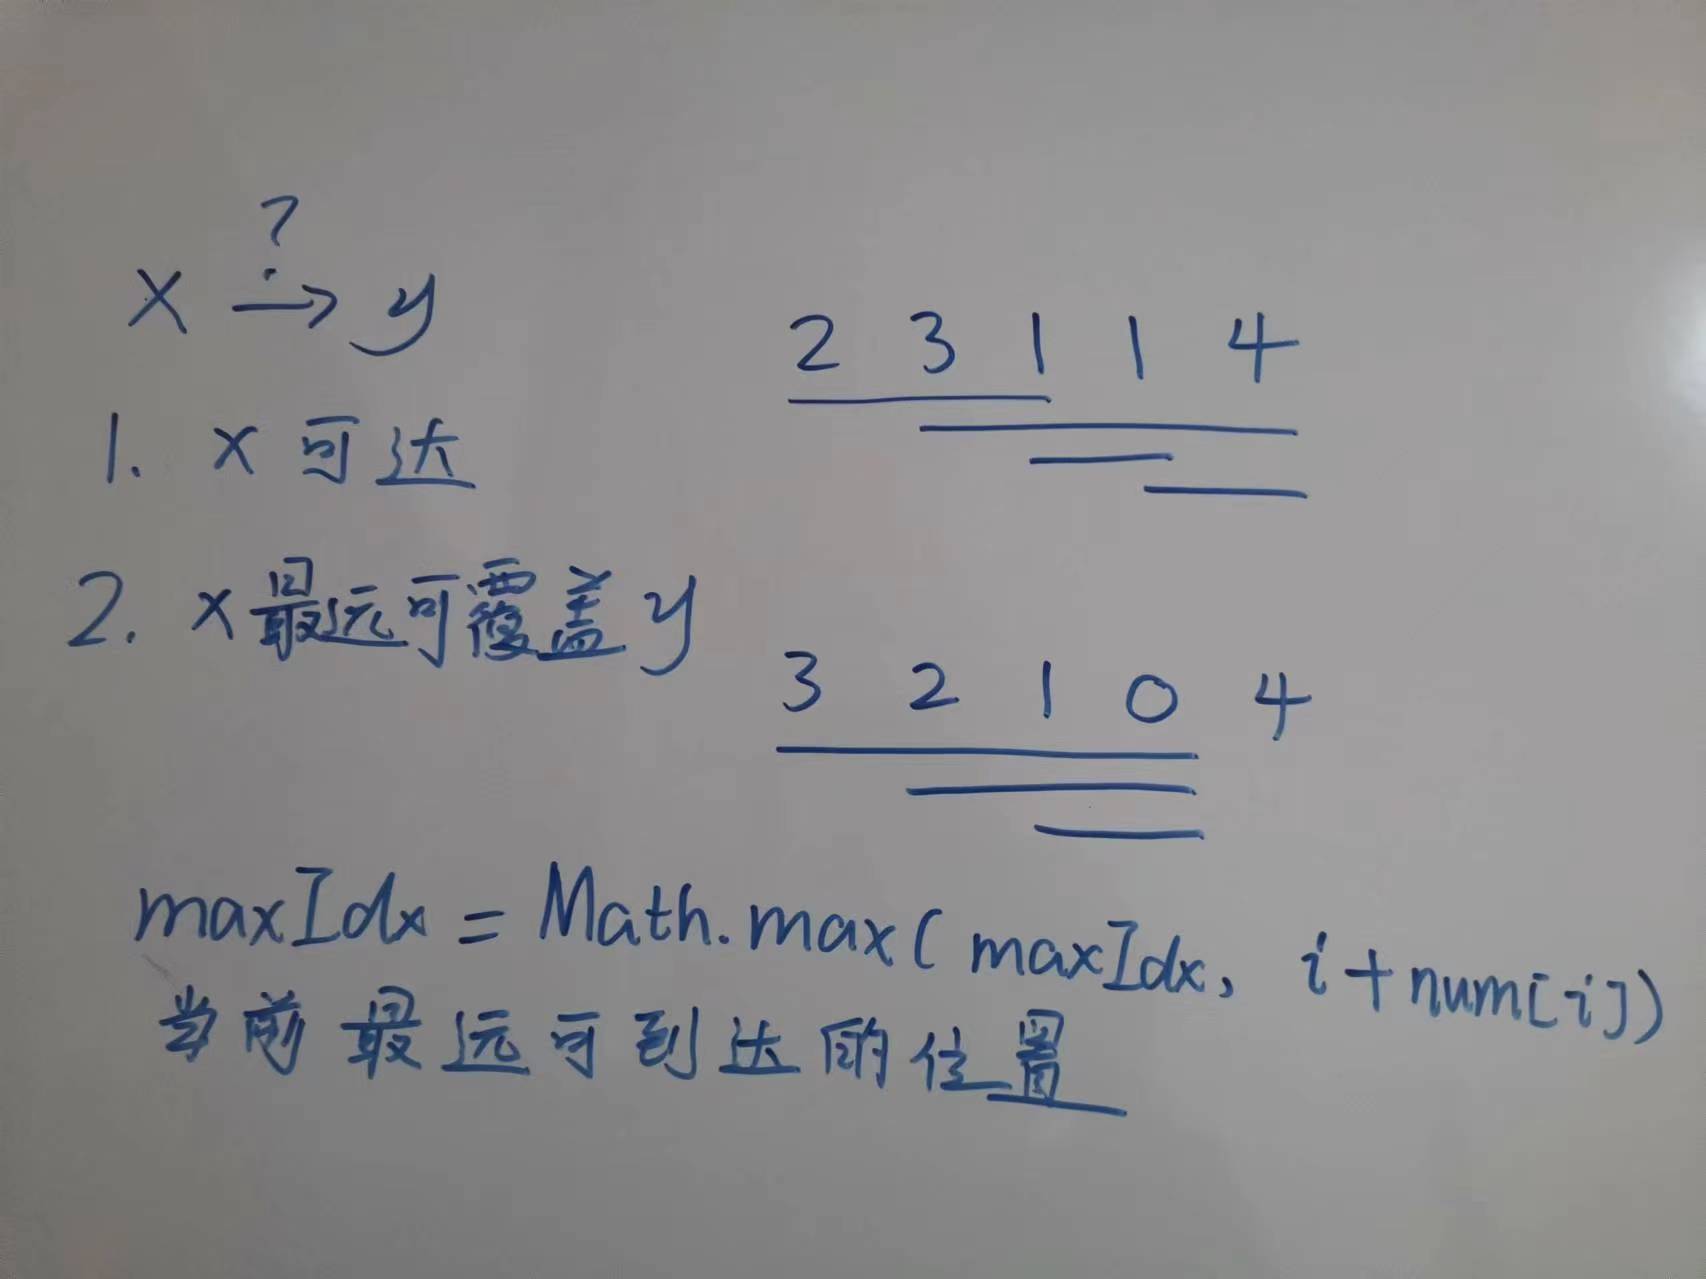 ?
x → y
1. x 可达
2. x 最远可覆盖 y
2 3 1 1 4
3 2 1 0 4
maxIdx = Math.max( maxIdx, i + num[i])
当前最远可到达的位置